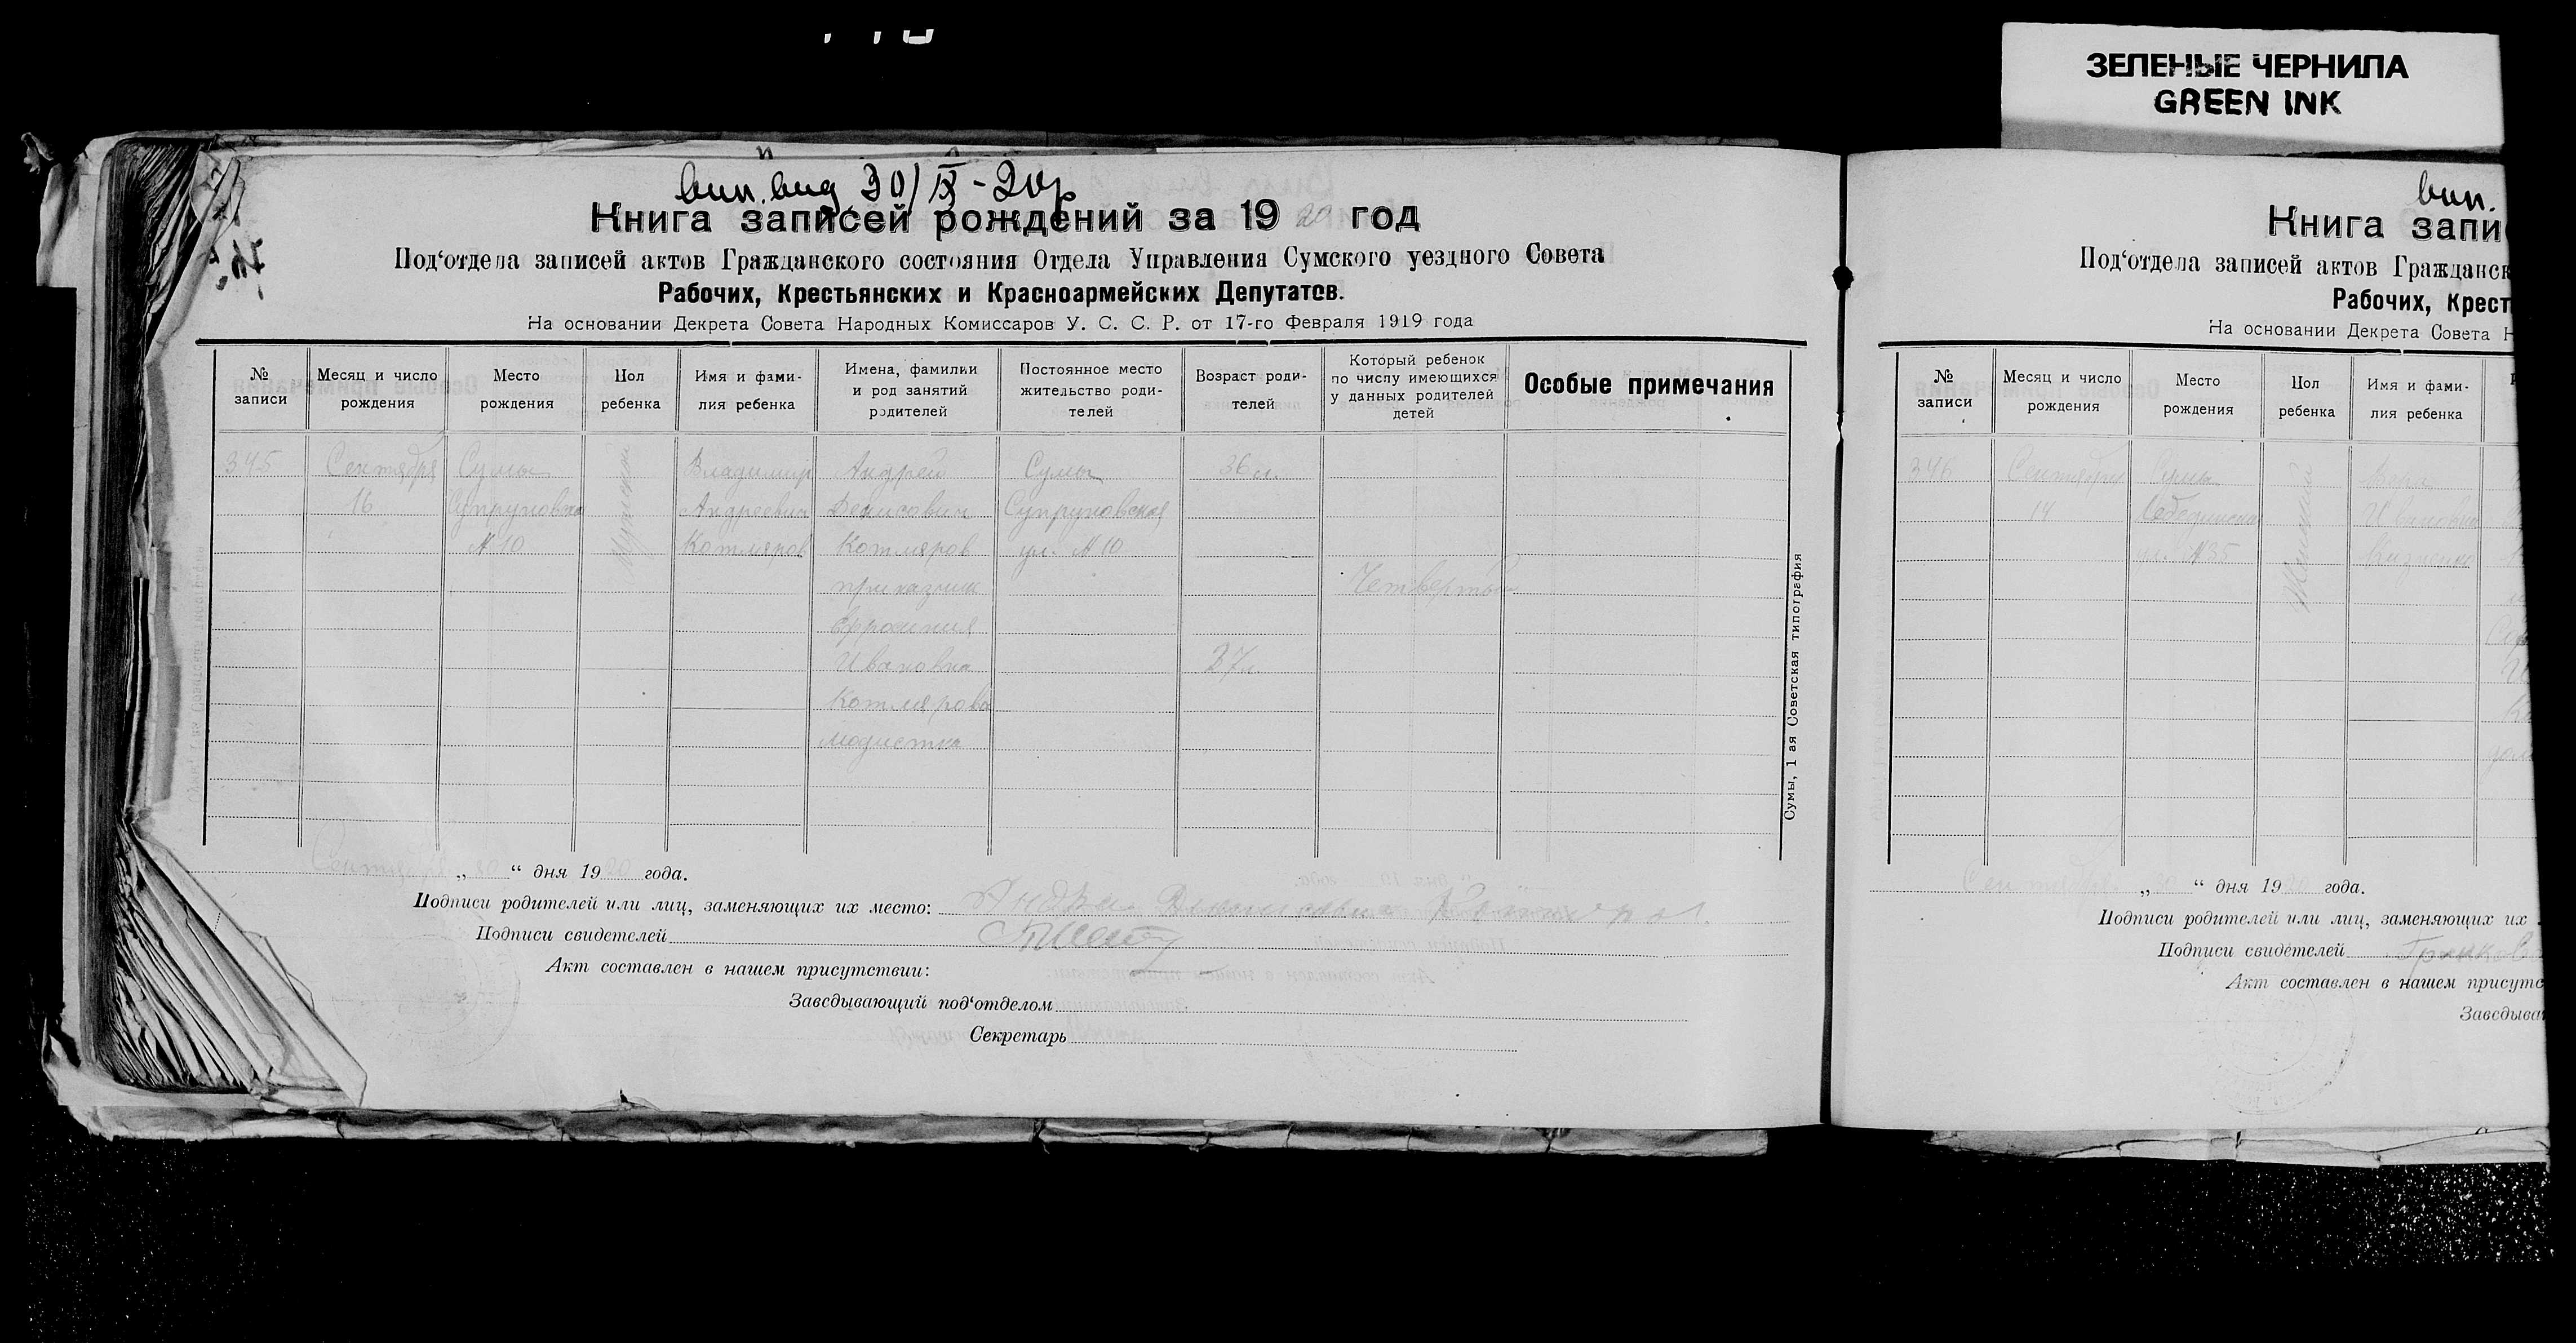 ЗЕЛЕНЫЕ ЧЕРНИЛА
GREEN INK
вип. вид 30/IX-20р
Книга записей рождений за 1920 год
Под‘отдела записей актов Гражданского состояния Отдела Управления Сумского уездного Совета
Рабочих, Крестьянских и Красноармейских Депутатов.
На основании Декрета Совета Народных Комиссаров У. С. С. Р. от 17-го Февраля 1919 года
№ записи
Месяц и число рождения
Место рождения
Пол ребенка
Имя и фами-
лия ребенка
Имена, фамильи
и род занятий
родителей
Постоянное место
жительство роди-
телей
Возраст роди-
телей
Который ребенок
по числу имеющихся
у данных родителей
детей
Особые примечания
345 Сентября Сумы Мужской Владимир Андрей Сумы 36 л.
16 Супруновка Андреевич Денисович Супруновская
№ 10 Котляров Котляров ул. № 10
приказчик Четвертый
Ефросиния
Ивановна 37 л
Котлярова
модистка
Сумы, 1 ая Советская типография
Сентября „ 20 “ дня 1920 года.
Подписи родителей или лиц, заменяющих их место: Андрей Денисович Котляров.
Подписи свидетелей
Акт составлен в нашем присутствии:
Заведывающий под‘отделом
Секретарь
вип.
Книга запи
Под‘отдела записей актов Гражданск
Рабочих, Крест
На основании Декрета Совета Н
№ записи
Месяц и число рождения
Место рождения
Пол ребенка
Имя и фами-
лия ребенка
346 Сентября Сумы Женский Вера
14 Лебединская Ивановна
ул. №35
Сентября „ “ дня 1920 года.
Подписи родителей или лиц, заменяющих их
Подписи свидетелей
Акт составлен в нашем присутс
Заведыва